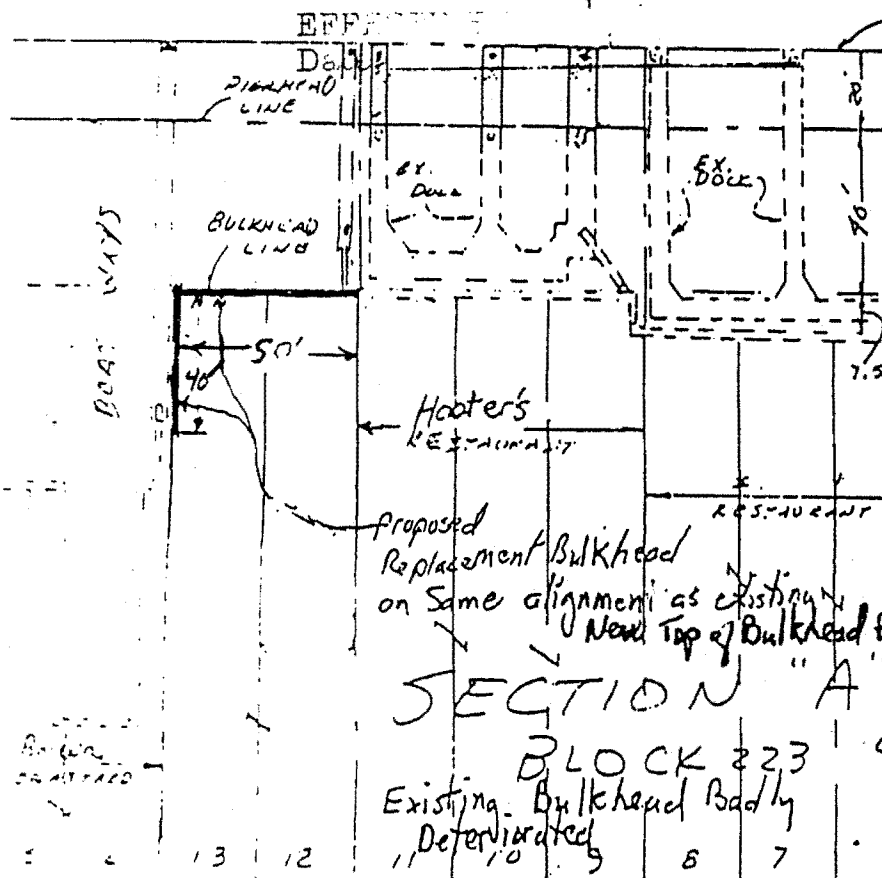 PIERHEAD
LINE
EX.
DOCK
EX.
DOCK
40'
BULKHEAD
LINE
BOAT WAYS
50'
40'
7.5
Hooter's
RESTAURANT
RESTAURANT
Proposed
Replacement Bulkhead
on Same alignment as existing
New Top of Bulkhead
SECTION "A"
BLOCK 223
Existing Bulkhead Badly
Deteriorated
13 12 11 10 9 8 7